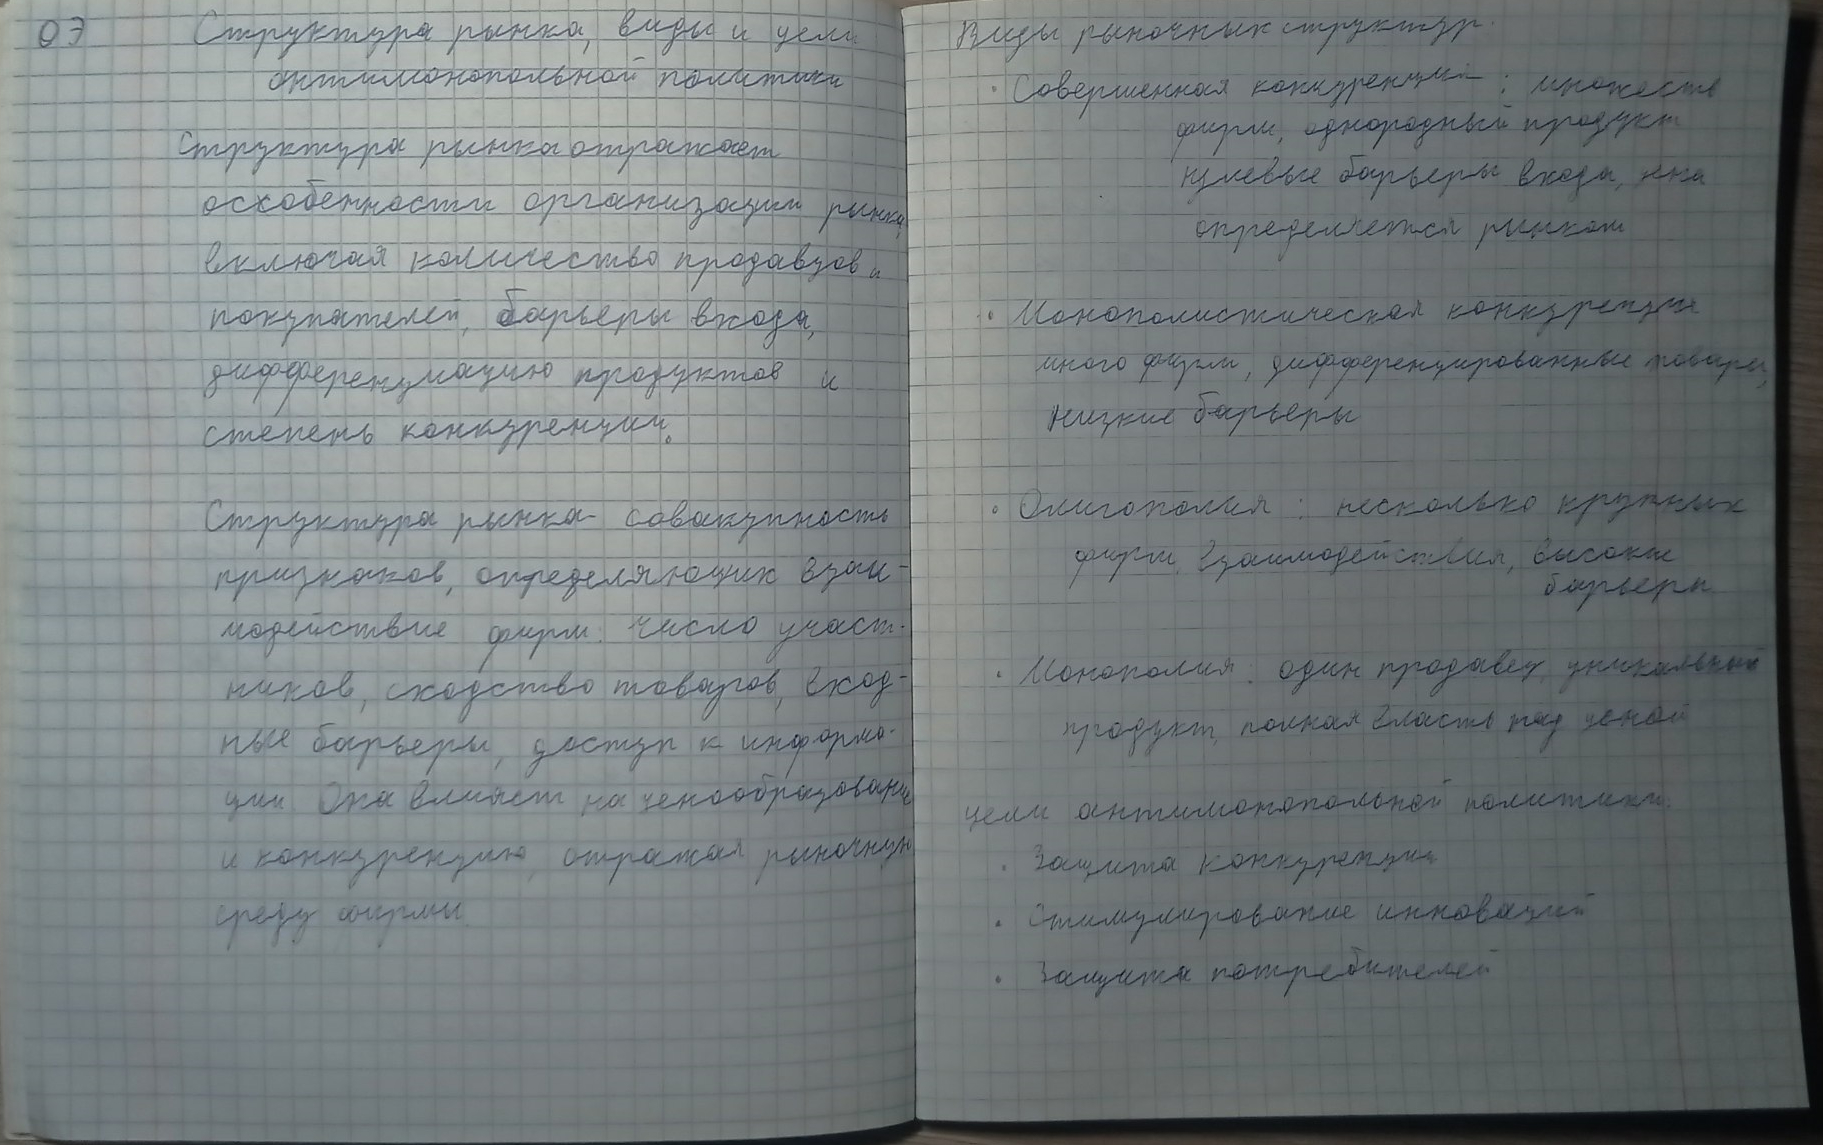 ОЭ
Структура рынка, виды и цели
антимонопольной политики
Структура рынка отражает
особенности организации рынка,
включая количество продавцов и
покупателей, барьеры входа,
дифференциацию продуктов и
степень конкуренции.
Структура рынка совакупность
признаков, определяющих взаи-
модействие фирм: число участ-
ников, сходство товаров, вход-
ные барьеры, доступ к информа-
ции. Она влияет на ценообразование
и конкуренцию, отражая рыночную
среду фирмы.
Виды рыночных структур.
· Совершенная конкуренция : множеств
фирм, однородный продукт
нулевые барьеры входа,
определяется рынком
· Монополистическая конкуренция
много фирм, дифференцированные товары,
низкие барьеры
· Олигополия : несколько крупных
фирм, взаимодействия, высокие
барьеры
· Монополия : один продавец, уникальный
продукт, полная власть над ценой
цели антимонопольной политики:
· Защита конкуренции
· Стимулирование инноваций
· Защита потребителей